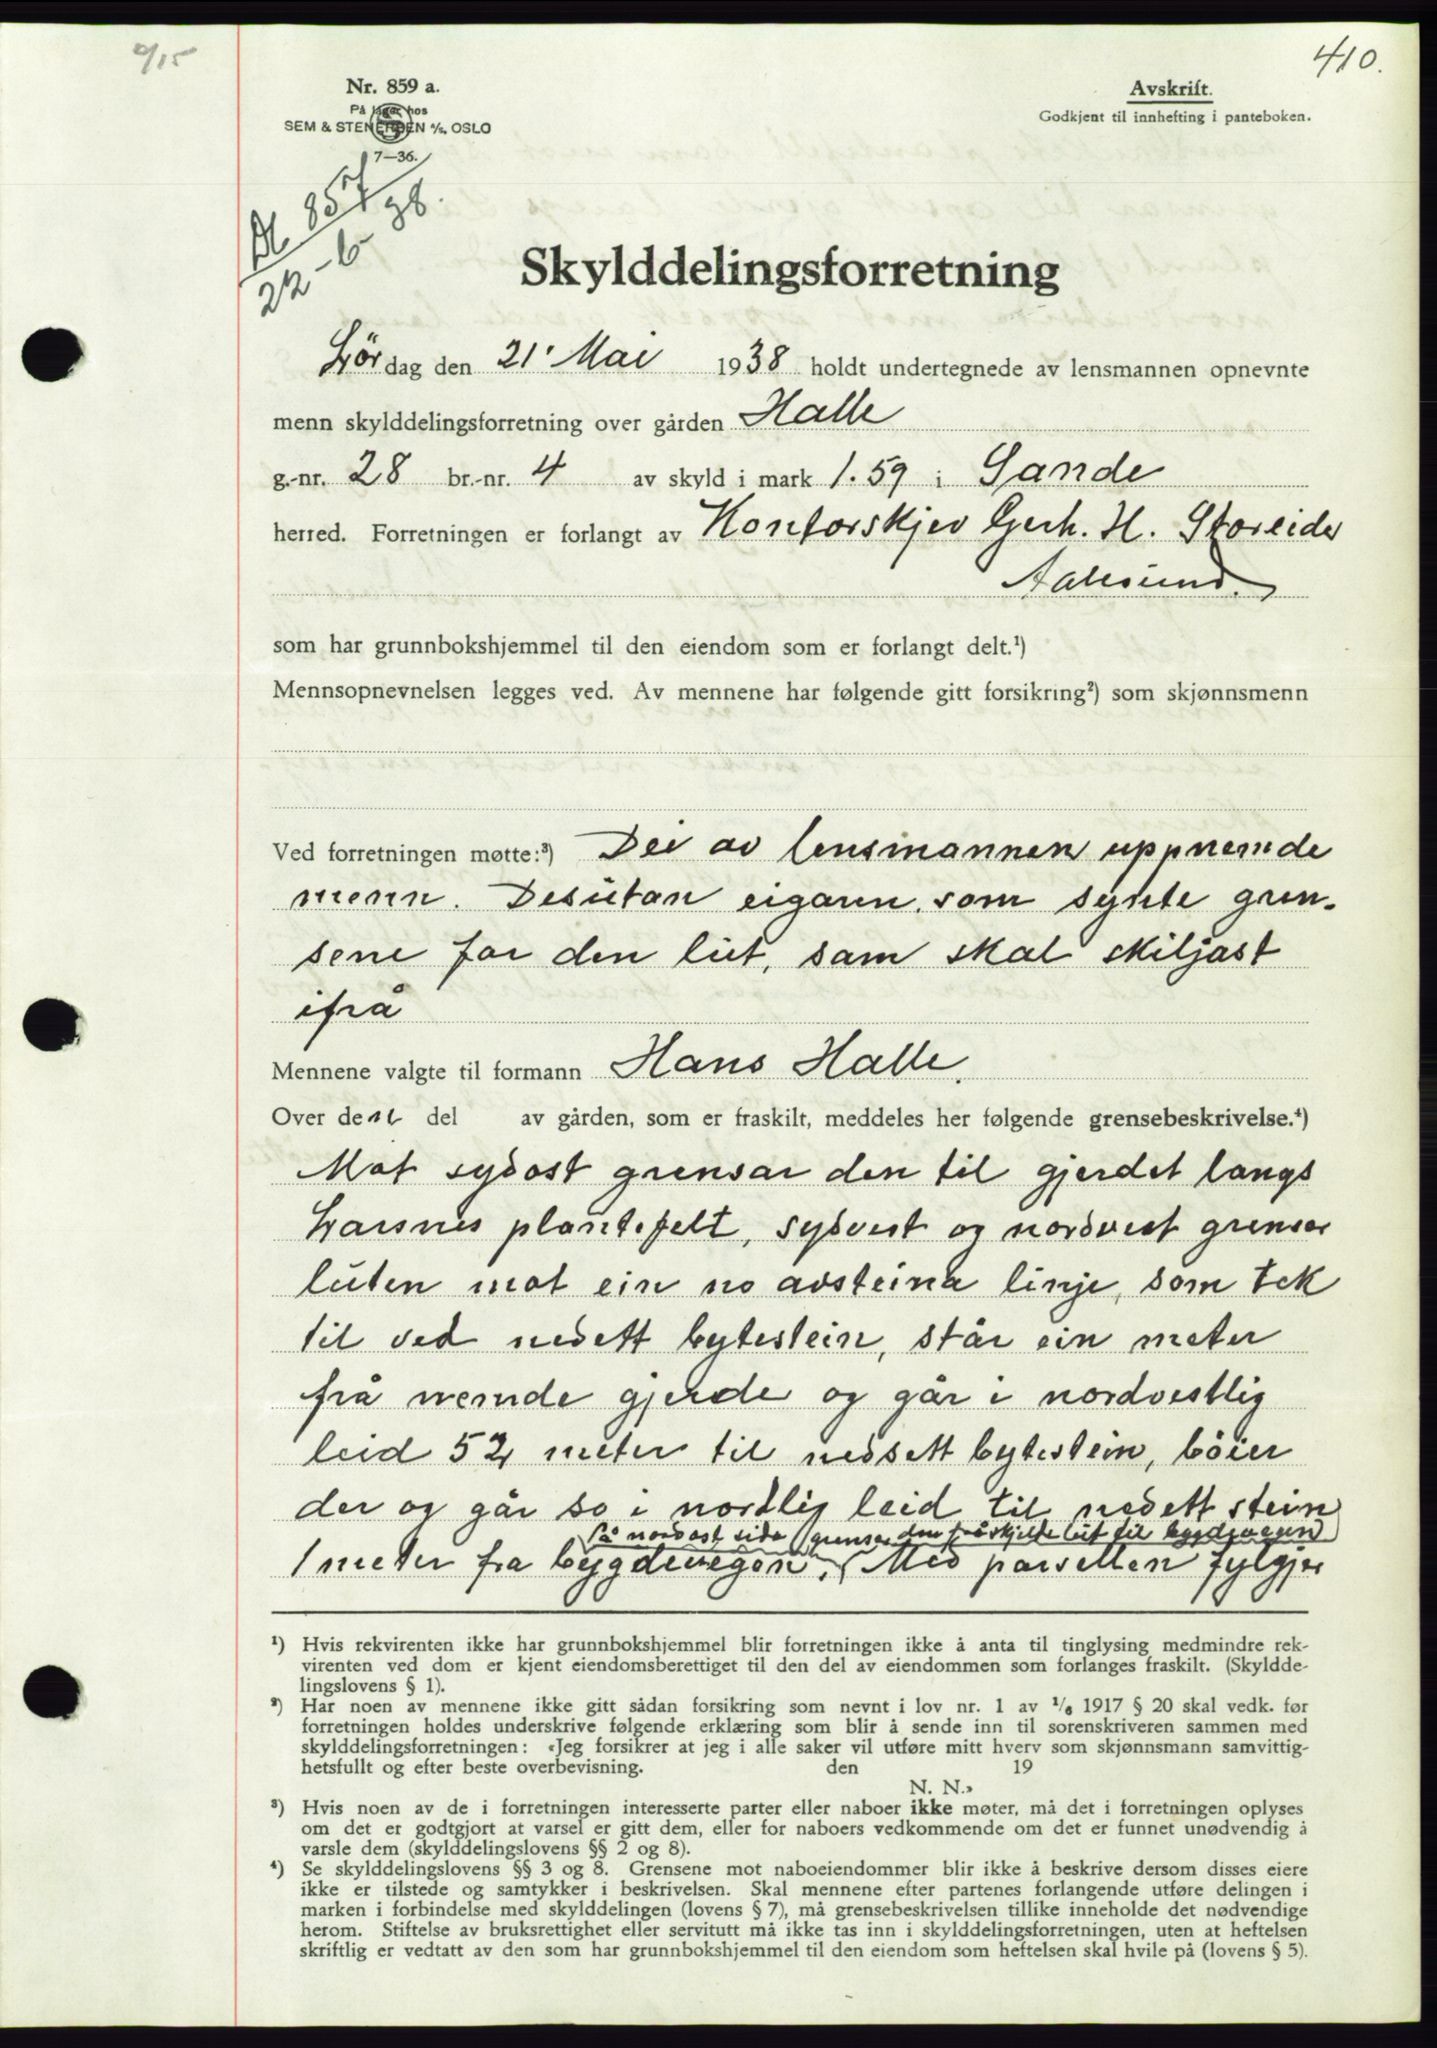 9/15
410.
Nr. 859 a.
På lager hos
SEM & STENERSEN A/S, OSLO
7—36.
Avskrift.
Godkjent til innhefting i panteboken.
Db 857/
22-6-38.
Skylddelingsforretning
Lördag den 21' Mai 1938 holdt undertegnede av lensmannen opnevnte
menn skylddelingsforretning over gården Halle
g.-nr. 28 br.-nr. 4 av skyld i mark 1.59 i Sande
herred. Forretningen er forlangt av Kontorskjev Gerh. H. Storeide
Aalesund.
som har grunnbokshjemmel til den eiendom som er forlangt delt.¹)
Mennsopnevnelsen legges ved. Av mennene har følgende gitt forsikring²) som skjønnsmenn
Ved forretningen møtte:³) Dei av lensmannen uppnemde
menn. Desutan eigaren, som synte gren-
sene for den lut, sam skal skiljast
ifrå
Mennene valgte til formann Hans Halle.
Over den del av gården, som er fraskilt, meddeles her følgende grensebeskrivelse.⁴)
Mot sydost grensar den til gjerdet langs
Larsnes plantefelt, sydvest og nordvest grensar
luten mot ein no avsteina linje, som tek
til ved nedsett bytestein, står ein meter
frå nemde gjerde og går i nordvestlig
leid 52 meter til nedsett bytestein, böier
der og går so i nordlig leid til nedsett stein
På nordost sida grensar den fråskjelte lut til bygdevegen
1 meter fra bygdevegen. Med parsellen fylgjer
¹) Hvis rekvirenten ikke har grunnbokshjemmel blir forretningen ikke å anta til tinglysing medmindre rek-
virenten ved dom er kjent eiendomsberettiget til den del av eiendommen som forlanges fraskilt. (Skyldde-
lingslovens § 1).
²) Har noen av mennene ikke gitt sådan forsikring som nevnt i lov nr. 1 av ¹/₆ 1917 § 20 skal vedk. før
forretningen holdes underskrive følgende erklæring som blir å sende inn til sorenskriveren sammen med
skylddelingsforretningen: «Jeg forsikrer at jeg i alle saker vil utføre mitt hverv som skjønnsmann samvittig-
hetsfullt og efter beste overbevisning. den 19
N. N.»
³) Hvis noen av de i forretningen interesserte parter eller naboer ikke møter, må det i forretningen oplyses
om det er godtgjort at varsel er gitt dem, eller for naboers vedkommende om det er funnet unødvendig å
varsle dem (skylddelingslovens §§ 2 og 8).
⁴) Se skylddelingslovens §§ 3 og 8. Grensene mot naboeiendommer blir ikke å beskrive dersom disses eiere
ikke er tilstede og samtykker i beskrivelsen. Skal mennene efter partenes forlangende utføre delingen i
marken i forbindelse med skylddelingen (lovens § 7), må grensebeskrivelsen tillike inneholde det nødvendige
herom. Stiftelse av bruksrettighet eller servitutt må ikke tas inn i skylddelingsforretningen, uten at heftelsen
skriftlig er vedtatt av den som har grunnbokshjemmel til den eiendom som heftelsen skal hvile på (lovens § 5).